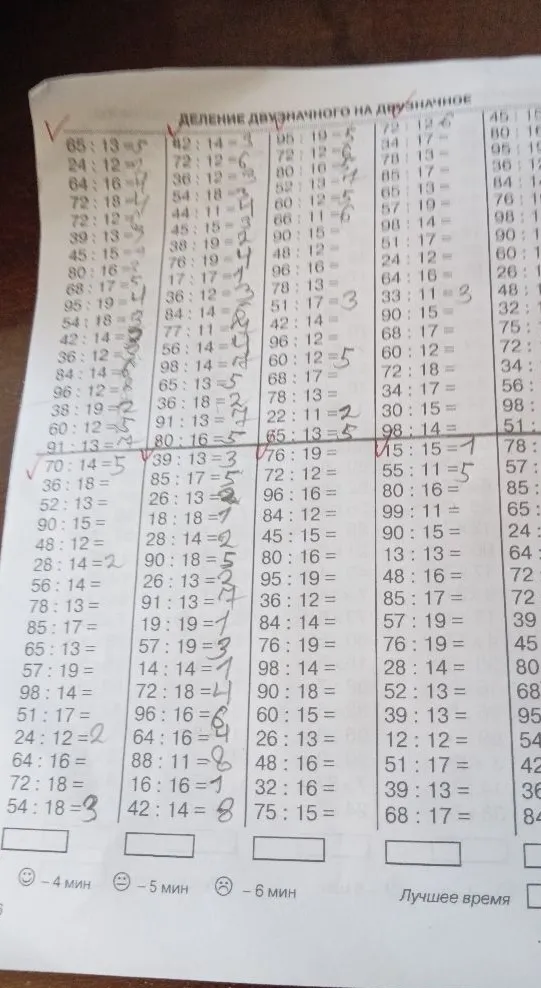 ДЕЛЕНИЕ ДВУЗНАЧНОГО НА ДВУЗНАЧНОЕ
65 : 13 = 5
24 : 12 =
64 : 16 = 4
72 : 18 = 4
72 : 12 =
39 : 13 = 3
45 : 15 =
80 : 16 =
68 : 17 =
95 : 19 =
54 : 18 = 3
42 : 14 =
36 : 12 =
84 : 14 =
96 : 12 =
38 : 19 = 2
60 : 12 = 5
91 : 13 = 7
70 : 14 = 5
36 : 18 =
52 : 13 =
90 : 15 =
48 : 12 =
28 : 14 = 2
56 : 14 =
78 : 13 =
85 : 17 =
65 : 13 =
57 : 19 =
98 : 14 =
51 : 17 =
24 : 12 = 2
64 : 16 =
72 : 18 =
54 : 18 = 3
42 : 14 = 3
72 : 12 = 6
36 : 12 = 3
54 : 18 = 3
44 : 11 = 4
45 : 15 = 3
38 : 19 = 2
76 : 19 = 4
17 : 17 = 1
36 : 12 = 3
84 : 14 =
77 : 11 =
56 : 14 = 4
98 : 14 = 7
65 : 13 = 5
36 : 18 = 2
91 : 13 = 7
80 : 16 = 5
39 : 13 = 3
85 : 17 = 5
26 : 13 = 2
18 : 18 = 1
28 : 14 = 2
90 : 18 = 5
26 : 13 = 2
91 : 13 = 7
19 : 19 = 1
57 : 19 = 3
14 : 14 = 1
72 : 18 = 4
96 : 16 = 6
64 : 16 = 4
88 : 11 = 8
16 : 16 = 1
42 : 14 = 8
95 : 19 = 5
72 : 12 = 6
80 : 16 =
52 : 13 = 4
60 : 12 = 5
66 : 11 = 6
90 : 15 =
48 : 12 =
96 : 16 =
78 : 13 =
51 : 17 = 3
42 : 14 =
96 : 12 =
60 : 12 = 5
68 : 17 =
78 : 13 =
22 : 11 = 2
65 : 13 = 5
76 : 19 =
72 : 12 =
96 : 16 =
84 : 12 =
45 : 15 =
80 : 16 =
95 : 19 =
36 : 12 =
84 : 14 =
76 : 19 =
98 : 14 =
90 : 18 =
60 : 15 =
26 : 13 =
48 : 16 =
32 : 16 =
75 : 15 =
72 : 12 6
34 : 17 =
78 : 13 =
85 : 17 =
65 : 13 =
57 : 19 =
98 : 14 =
51 : 17 =
24 : 12 =
64 : 16 =
33 : 11 = 3
90 : 15 =
68 : 17 =
60 : 12 =
72 : 18 =
34 : 17 =
30 : 15 =
98 : 14 =
15 : 15 = 1
55 : 11 = 5
80 : 16 =
99 : 11 =
90 : 15 =
13 : 13 =
48 : 16 =
85 : 17 =
57 : 19 =
76 : 19 =
28 : 14 =
52 : 13 =
39 : 13 =
12 : 12 =
51 : 17 =
39 : 13 =
68 : 17 =
45 : 15
80 : 16
95 : 19
36 : 12
84 : 14
76 : 19
98 : 1
90 : 1
60 : 1
26 : 1
48 :
32 :
75 :
72 :
34 :
56 :
98 :
51 :
78 :
57 :
85 :
65 :
24 :
64 :
72
72
39
45
80
68
95
54
42
36
84
– 4 мин – 5 мин – 6 мин
Лучшее время
6